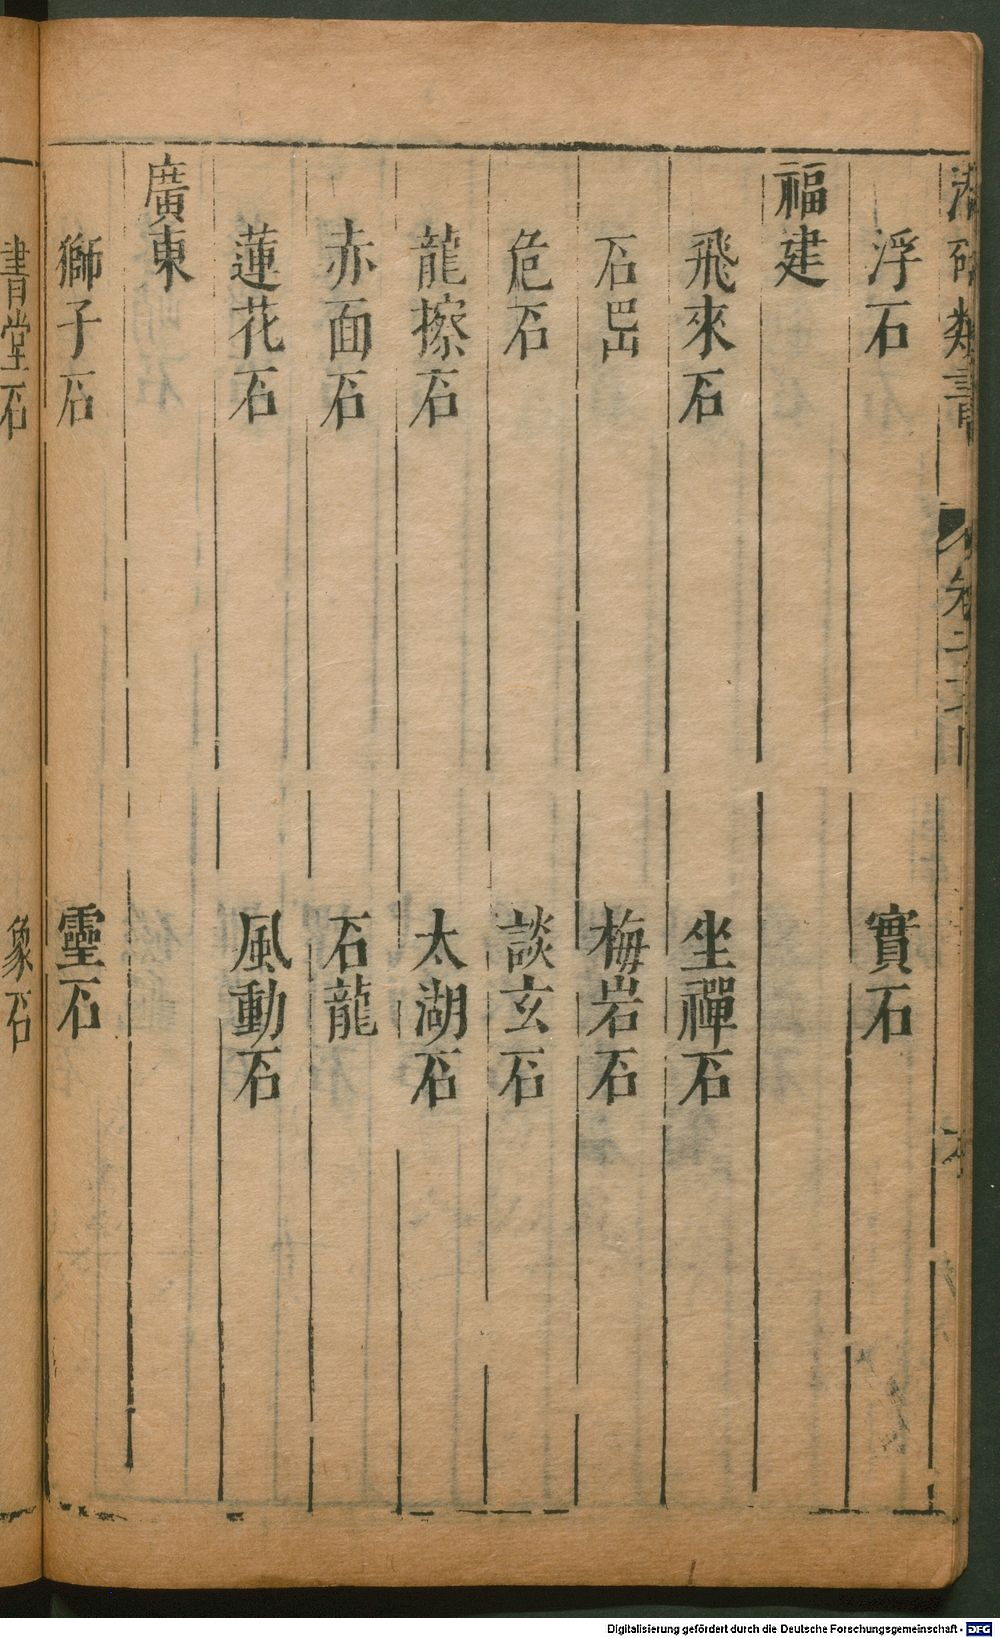 浮石 實石
福建
飛來石 坐禪石
石㟁 梅岩石
危石 談玄石
龍擦石 太湖石
赤面石 石龍
蓮花石 風動石
廣東
獅子石 靈石
書堂石 象石
Digitalisierung gefördert durch die Deutsche Forschungsgemeinschaft - DFG